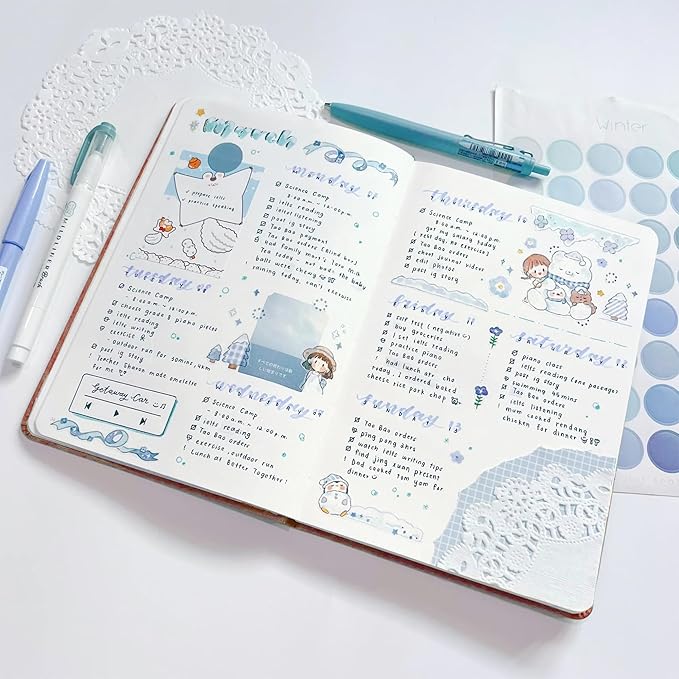 march
monday 07
prepare ielts
practise speaking
Science Camp
8:00 a.m - 12:00 p.m
ielts reading
ielts listening
post ig story
Tao Bao payment
Tao Bao orders
God Family mart's
Tea today - mad
balls were chewy
raining today, can't exercise
tuesday 08
Science Camp
8:00 a.m - 12:00 p.m
choose grade 8 piano pieces
ielts reading
ielts writing
exercise
outdoor run for 30mins, 4km
post ig story
Tao Bao orders
! Teacher Sharon made omelette
for me
Getaway Car
wednesday 09
Science Camp
8:00 a.m - 12:00 p.m
ielts reading
Tao Bao orders
exercise, outdoor run
! Lunch at Better Together!
thursday 10
Science Camp
8:00 a.m - 12:00 p.m
! got my salary today
! rest day, no exercise
Tao Bao orders
shoot journal videos
edit photos
post ig story
friday 11
self test (negative)
buy groceries
1 set ielts reading
practice piano
Tao Bao orders
had lunch at cho
today, I ordered baked
cheese rice pork chop
saturday 12
piano class
ielts reading (one passage)
post ig story
swimming 46mins
Tao Bao orders
ielts listening
mum cooked rendang
chicken for dinner
sunday 13
Tao Bao orders
ping pong 2hrs
watch ielts writing tips
find jing xuan present
! Dad cooked tom yam for
dinner
Winter
MILDLINER